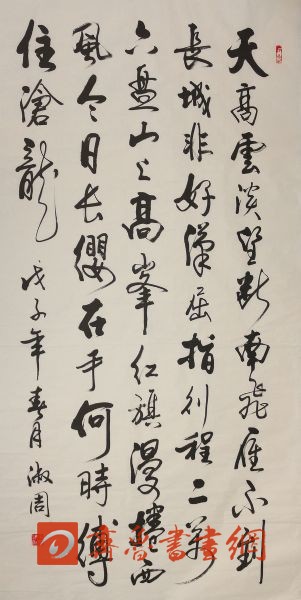 天高雲淡望斷南飛雁不到
長城非好漢屈指行程二萬
六盤山上高峯紅旗漫捲西
風今日長纓在手何時縛
住滄龍 戊子年春月 淑周
齊魯書畫網